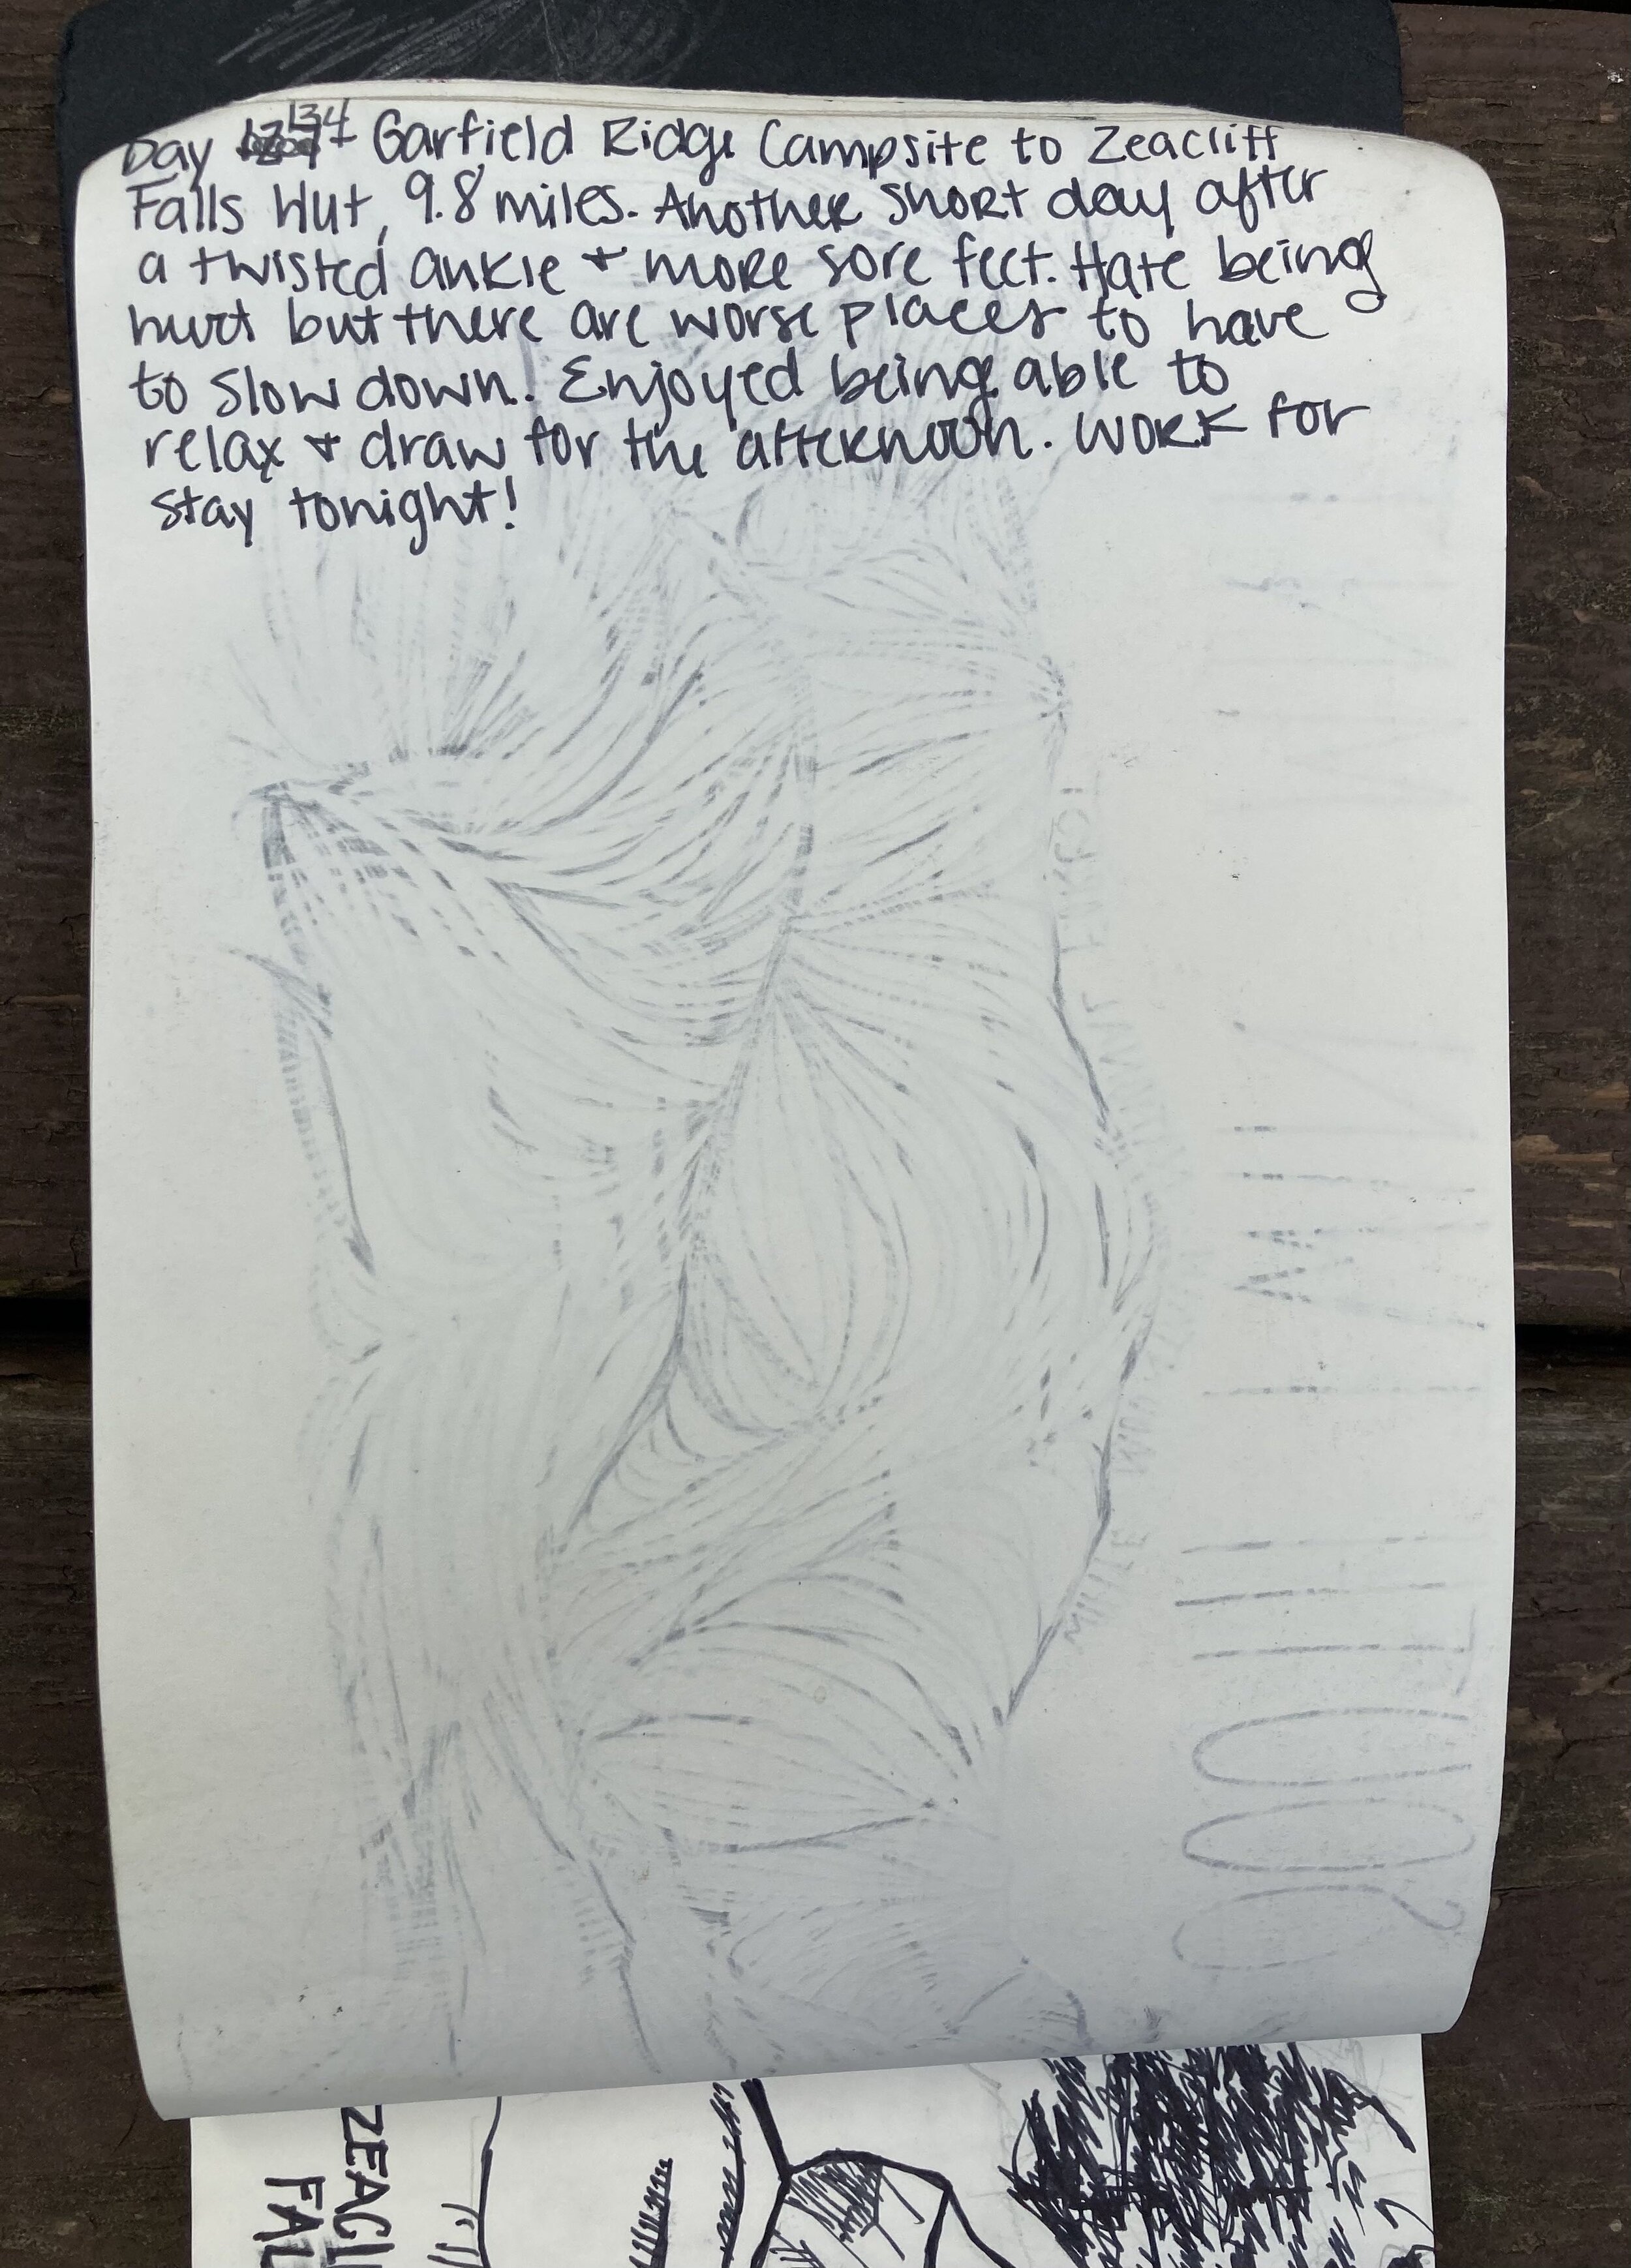 Day 134 Garfield Ridge Campsite to Zeacliff
Falls Hut, 9.8 miles. Another short day after
a twisted ankle + more sore feet. Hate being
hurt but there are worse places to have
to slow down. Enjoyed being able to
relax + draw for the afternoon. Work for
stay tonight!
ZEACLI
FAL